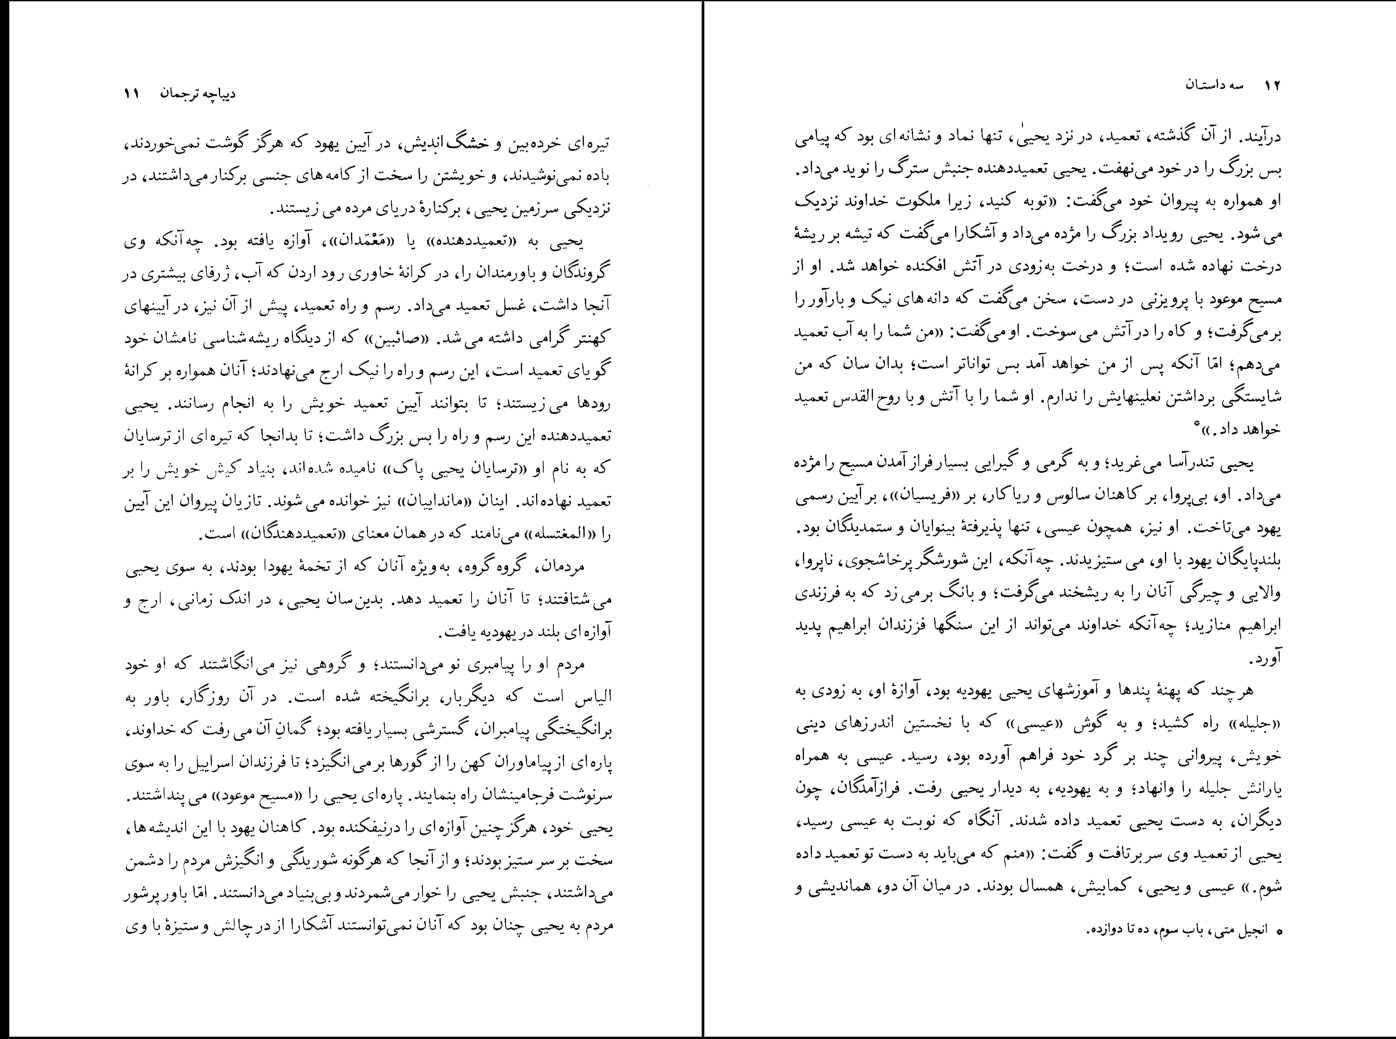 دیباچه ترجمان ۱۱
تیره‌ای خرده‌بین و خشگ‌اندیش، در آیین یهود که هرگز گوشت نمی‌خوردند،
باده نمی‌نوشیدند، و خویشتن را سخت از کامه‌های جنسی برکنار می‌داشتند، در
نزدیکی سرزمین یحیی، برکنارهٔ دریای مرده می‌زیستند.
یحیی به «تعمیددهنده» یا «مَعْمَدان»، آوازه یافته بود. چه‌آنکه وی
گروندگان و باورمندان را، در کرانهٔ خاوری رود اردن که آب، ژرفای بیشتری در
آنجا داشت، غسل تعمید می‌داد. رسم و راه تعمید، پیش از آن نیز، در آیینهای
کهنتر گرامی داشته می‌شد. «صائبین» که از دیدگاه ریشه‌شناسی نامشان خود
گویای تعمید است، این رسم و راه را نیک ارج می‌نهادند؛ آنان همواره بر کرانهٔ
رودها می‌زیستند؛ تا بتوانند آیین تعمید خویش را به انجام رسانند. یحیی
تعمیددهنده این رسم و راه را بس بزرگ داشت؛ تا بدانجا که تیره‌ای از ترسایان
که به نام او «ترسایان یحیی پاک» نامیده شده‌اند، بنیاد کیش خویش را بر
تعمید نهاده‌اند. اینان «ماندایبان» نیز خوانده می‌شوند. تازیان پیروان این آیین
را «المغتسله» می‌نامند که در همان معنای «تعمیددهندگان» است.
مردمان، گروه گروه، به‌ویژه آنان که از تخمهٔ یهودا بودند، به سوی یحیی
می‌شتافتند؛ تا آنان را تعمید دهد. بدین‌سان یحیی، در اندک زمانی، ارج و
آوازه‌ای بلند در یهودیه یافت.
مردم او را پیامبری نو می‌دانستند؛ و گروهی نیز می‌انگاشتند که او خود
الیاس است که دیگربار، برانگیخته شده است. در آن روزگار، باور به
برانگیختگی پیامبران، گسترشی بسیار یافته بود؛ گمانِ آن می‌رفت که خداوند،
پاره‌ای از پیام‌اوران کهن را از گورها برمی‌انگیزد؛ تا فرزندان اسراییل را به سوی
سرنوشت فرجامینشان راه بنمایند. پاره‌ای یحیی را «مسیح موعود» می‌پنداشتند.
یحیی خود، هرگز چنین آوازه‌ای را درنیفکنده بود. کاهنان یهود با این اندیشه‌ها،
سخت بر سر ستیز بودند؛ و از آنجا که هرگونه شوریدگی و انگیزش مردم را دشمن
می‌داشتند، جنبش یحیی را خوار می‌شمردند و بی‌بنیاد می‌دانستند. امّا باور پرشور
مردم به یحیی چنان بود که آنان نمی‌توانستند آشکارا از در چالش و ستیزهٔ با وی
۱۲ سه داستان
درآیند. از آن گذشته، تعمید، در نزد یحییٰ، تنها نماد و نشانه‌ای بود که پیامی
بس بزرگ را در خود می‌نهفت. یحیی تعمیددهنده جنبش سترگ را نوید می‌داد.
او همواره به پیروان خود می‌گفت: «توبه کنید، زیرا ملکوت خداوند نزدیک
می‌شود. یحیی رویداد بزرگ را مژده می‌داد و آشکارا می‌گفت که تیشه بر ریشهٔ
درخت نهاده شده است؛ و درخت به‌زودی در آتش افکنده خواهد شد. او از
مسیح موعود با پرویزنی در دست، سخن می‌گفت که دانه‌های نیک و بارآور را
برمی‌گرفت؛ و کاه را در آتش می‌سوخت. او می‌گفت: «من شما را به آب تعمید
می‌دهم؛ امّا آنکه پس از من خواهد آمد بس تواناتر است؛ بدان سان که من
شایستگی برداشتن نعلینهایش را ندارم. او شما را با آتش و با روح‌القدس تعمید
خواهد داد.»*
یحیی تندرآسا می‌غرید؛ و به گرمی و گیرایی بسیار فراز آمدن مسیح را مژده
می‌داد. او، بی‌پروا، بر کاهنان سالوس و ریاکار، بر «فریسیان»، بر آیین رسمی
یهود می‌تاخت. او نیز، همچون عیسی، تنها پذیرفتهٔ بینوایان و ستمدیدگان بود.
بلندپایگان یهود با او، می‌ستیزیدند. چه‌آنکه، این شورشگر پرخاشجوی، ناپروا،
والایی و چیرگی آنان را به ریشخند می‌گرفت؛ و بانگ برمی‌زد که به فرزندی
ابراهیم منازید؛ چه‌آنکه خداوند می‌تواند از این سنگها فرزندان ابراهیم پدید
آورد.
هرچند که پهنهٔ پندها و آموزشهای یحیی یهودیه بود، آوازهٔ او، به زودی به
«جلیله» راه کشید؛ و به گوش «عیسی» که با نخستین اندرزهای دینی
خویش، پیروانی چند بر گرد خود فراهم آورده بود، رسید. عیسی به همراه
یارانش جلیله را وانهاد؛ و به یهودیه، به دیدار یحیی رفت. فرازآمدگان، چون
دیگران، به دست یحیی تعمید داده شدند. آنگاه که نوبت به عیسی رسید،
یحیی از تعمید وی سر برتافت و گفت: «منم که می‌باید به دست تو تعمید داده
شوم.» عیسی و یحیی، کمابیش، همسال بودند. در میان آن دو، هماندیشی و
* انجیل متی، باب سوم، ده تا دوازده.